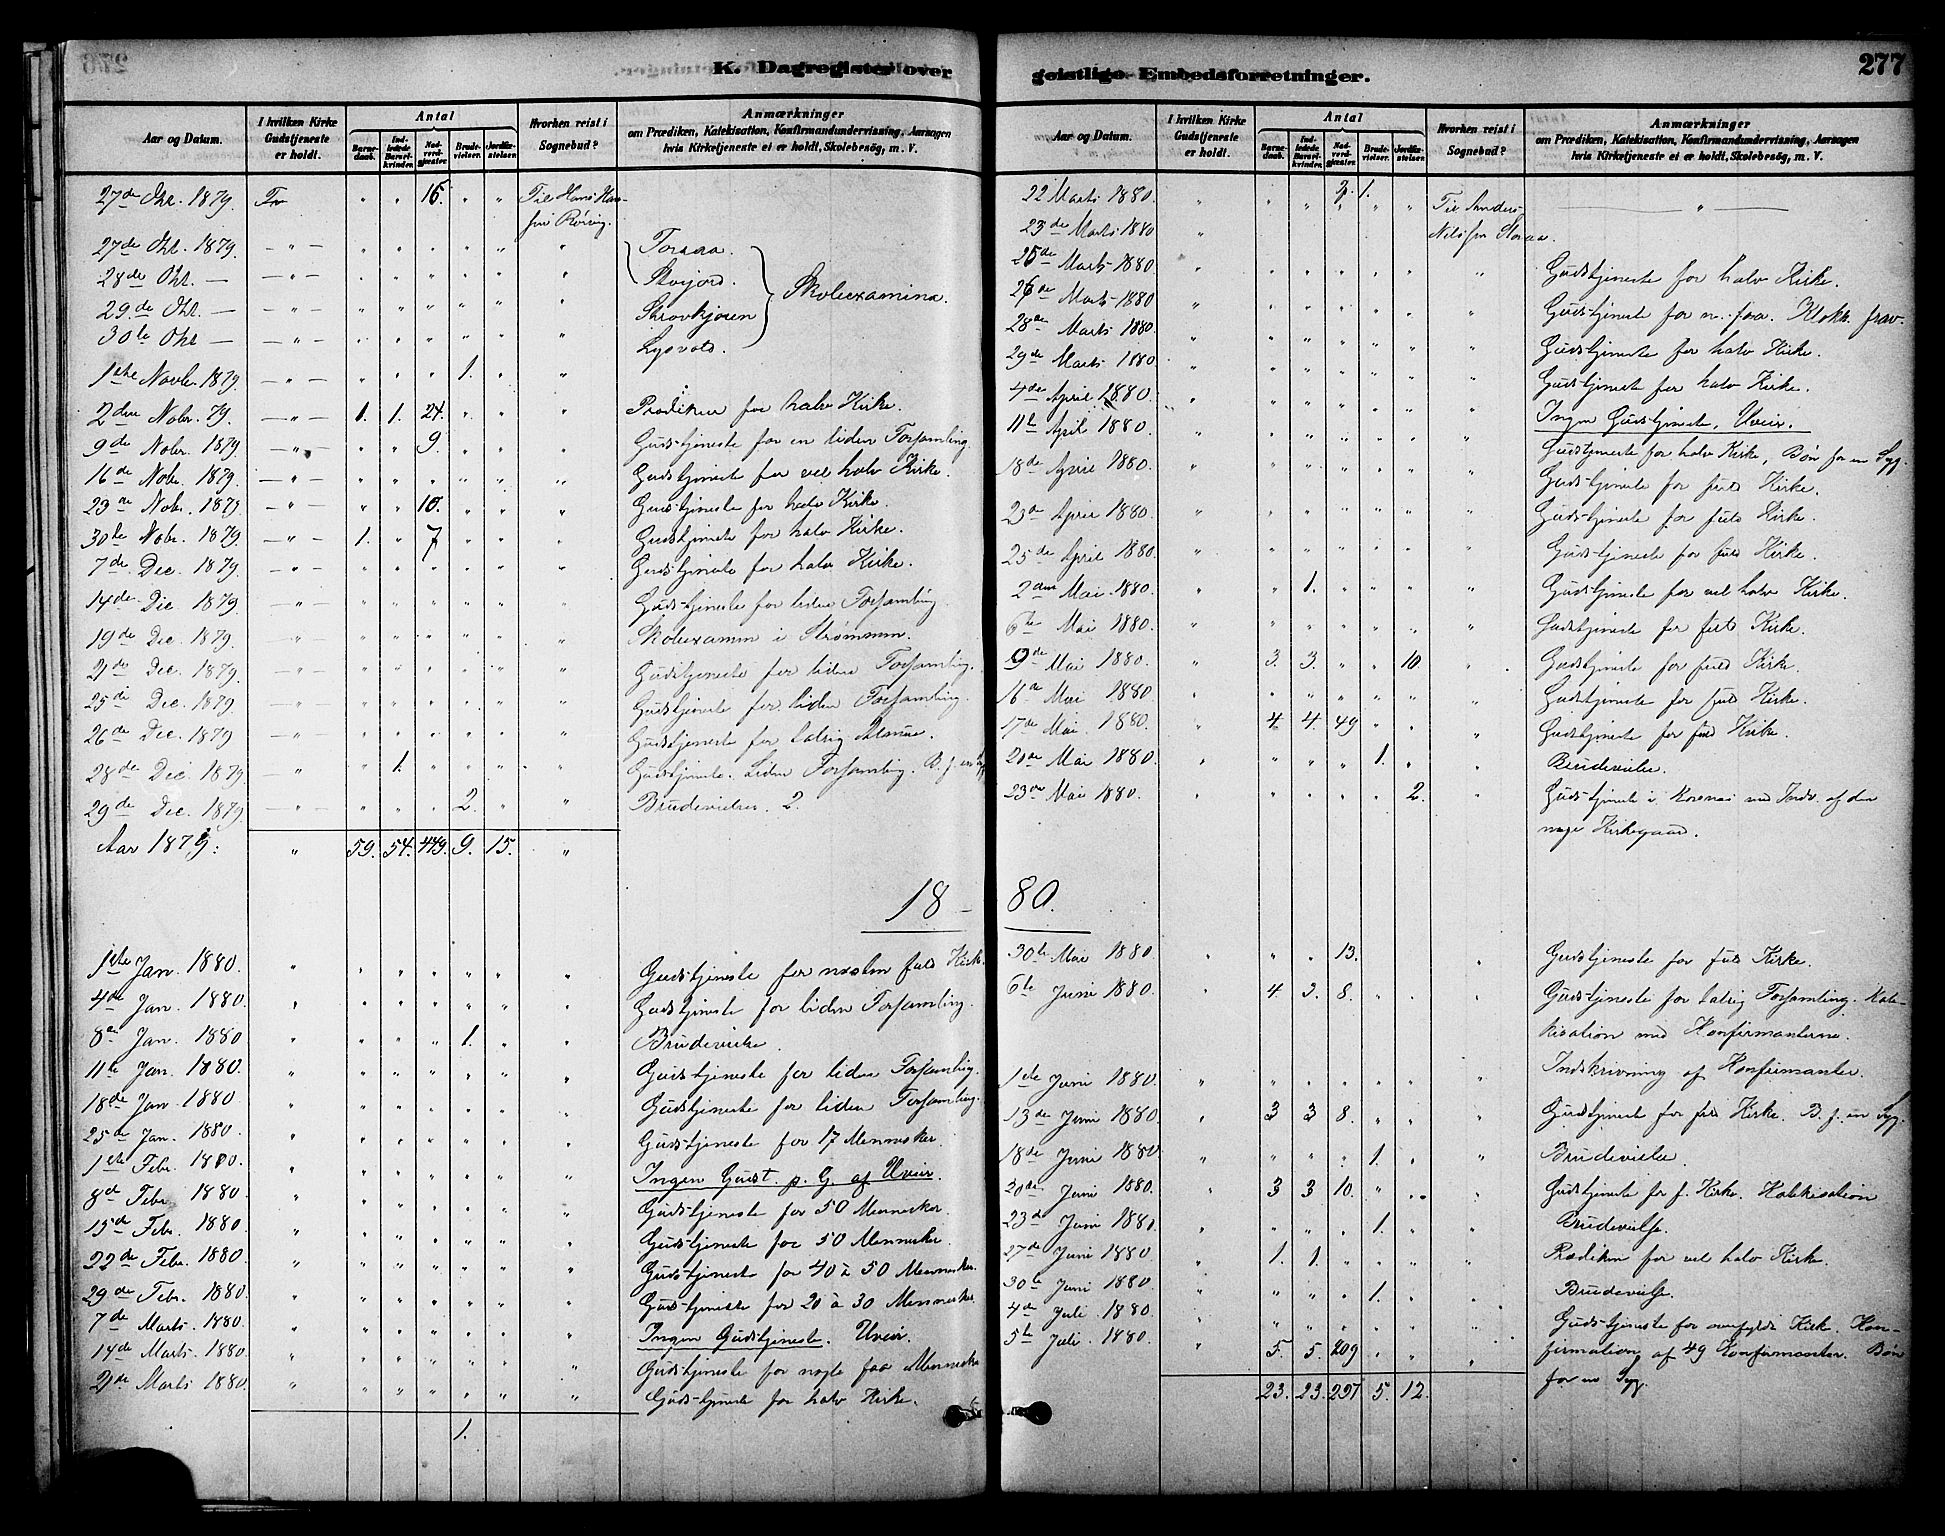 K. Dagregister over
Aar og Datum.
I hvilken Kirke Gudstjeneste er holdt.
Antal
Barnedaab.
Indledede Barselkvinder.
Nadverdgjester.
Brudevielser.
Jordfæstelser.
Hvorhen reist i Sognebud?
Anmærkninger
om Prædiken, Katekisation, Konfirmandundervisning, Aarsagen
hvis Kirketjeneste ei er holdt, Skolebesög, m. V.
27de Oktr. 1879. " " 16. " " Til Hans
27de Okt. 1879. — " — " " " " " "
28de Okt. — — " — " " " " " "
29de Okt. — — " — " " " " " " Skoleexamina.
30te Okt — — " — " " " " " "
1ste Novbr. 1879. — " — " " " 1. " "
2den Nobr. 79. — " — 1. 1. 24. " " " Prædiken for halv Kirke.
9de Nobr. 1879. — " — " " 9. " " " Gudstjeneste for en liden Forsamling.
16de Nobr. 1879. — " — " " " " " " Gudstjeneste for vel halv Kirke.
23de Nobr. 1879. — " — " " 10. " " " Gudstjeneste for halv Kirke.
30te Nobr. 1879. — " — 1. " 7 " " " Gudstjeneste for halv Kirke.
7de Dec. 1879. — " — " " " " " " Gudstjeneste for halv Kirke.
14de Dec 1879. — " — " " " " " " Gudstjeneste for liden Forsamling.
19de Dec. 1879. — " — " " " " " " Skoleexamen i Strømmen.
21de Dec. 1879. — " — " " " " " " Gudstjeneste for liden Forsamling.
25de Dec. 1879. — " — " " " " " " Gudstjeneste for liden Forsamling.
26de Dec. 1879 — " — " " " " " " Gudstjeneste for talrig Almue.
28de Dec 1879. — " — " 1. " " " " Gudstjeneste. Liden Forsamling. B. f. en
29de Dec. 1879. — " — " " " 2. " " Brudevielser. 2.
Aar 1879: " 59. 54. 449. 9. 15. "
18 –
1ste Jan. 1880. " " " " " " " Gudstjeneste for næsten fuld Kirk.
4de Jan. 1880. " " " " " " " Gudstjeneste for liden Forsamling.
8de Jan. 1880 " " " " 1. " " Brudevielse.
11te Jan. 1880. " " " " " " " Gudstjeneste for liden Forsamling.
18de Jan 1880 " " " " " " " Gudstjeneste for liden Forsamling.
25de Jan. 1880. " " " " " " " Gudstjeneste for 17 Mennesker.
1ste Febr. 1880. " " " " " " " Ingen Gudst. p. G. af Uveir.
8de Febr. 1880 " " " " " " " Gudstjeneste for 50 Mennesker.
15de Febr. 1880 " " " " " " " Gudstjeneste for 50 Menneske.
22de Febr. 1880 " " " " " " " Gudstjeneste for 40 à 50 Mennesker.
29de Febr. 1880. " " " " " " " Gudstjeneste for 20 à 30 Mennesker.
7de Marts. 1880. " " " " " " " Ingen Gudstjeneste. Uveir.
14de Marts. 1880. " " " " " " " Gudstjeneste for nogle faa Menneske
21de Marts 1880. " " " " " " " Gudstjeneste for halv Kirke.
1.
geistlige Embedsforretninger.
277
Aar og Datum.
I hvilken Kirke Gudstjeneste er holdt.
Antal
Barnedaab.
Indledede Barselkvinder.
Nadverdgjester.
Brudevielser.
Jordfæstelser.
Hvorhen reist i Sognebud?
Anmærkninger
om Prædiken, Katekisation, Konfirmandundervisning, Aarsagen
hvis Kirketjeneste ei er holdt, Skolebesög, m. V.
22 Marts 1880. " " " 1.
23de Marts 1880 " " " " " Til Anders "
25de Marts 1880 " " " " " " " Gudstjeneste for halv Kirke.
26de Marts 1880 " " " " " " " Gudstjeneste for n. faa. Klokk. frav.
28de Marts 1880 " " " " " " " Gudstjeneste for halv Kirke.
29de Marts 1880 " " " " " " " Gudstjeneste for halv Kirke.
4de April 1880. " " " " " " " Ingen Gudstjeneste. Uveir.
11te April 1880. " " " " " " " Gudstjeneste for halv Kirke, Bøn for en Syg.
18de April 1880. " " " " " " " Gudstjeneste for fuld Kirke.
23de April 1880. " " " " " " " Gudstjeneste for fuld Kirke.
25de April 1880. " " " " " " " Gudstjeneste for fuld Kirke.
2den Mai. 1880. " " 1. " " " " Gudstjeneste for vel halv Kirke.
6te Mai 1880. " " " " " " " Gudstjeneste for fuld Kirke.
9de Mai 1880. " 3. 3. " " 10. " Gudstjeneste for fuld Kirke.
16de Mai 1880. " " " " " " " Gudstjeneste for fuld Kirke.
17de Mai 1880. " 4. 4. 49 " " " Gudstjeneste for fuld Kirke.
20de Mai 1880. " " " " 1. " " Brudevielse.
23de Mai 1880. " " " " " 2. " Gudstjeneste i Korsnæs med Indv. af den
nye Kirkegaard.
80.
30te Mai 1880. " " " 13. " Gudstjeneste for fuld Kirke.
6te Juni 1880. " 4. 3. 8. " " " Gudstjeneste for talrig Forsamling. Kate-
kisation med Konfirmanterne.
1ste Juni 1880. " " " " " " " Indskrivning af Konfirmanter.
13de Juni 1880 " 3 3 8. " " " Gudstjeneste for fuld Kirke. B. f. en Syg.
18de Juni 1880 " " " " 1. " " Brudevielse.
20de Juni 1880. " 3 3 10. " " " Gudstjeneste for f. Kirke. Katekisation
23de Juni 1880. " " " " 1. " " Brudevielse.
27de Juni 1880 " 1. 1. " " " " Prædiken for vel halv Kirke.
30te Juni 1880. " " " " 1. " " Brudevielse.
4de Juli 1880. " " " " " " " Gudstjeneste for overfyldt Kirke. Kon-
5te Juli 1880. " 5. 5. 209 " " " firmation af 49 Konfirmanter. Bøn
23. 23. 297 5. 12. for en Syg.